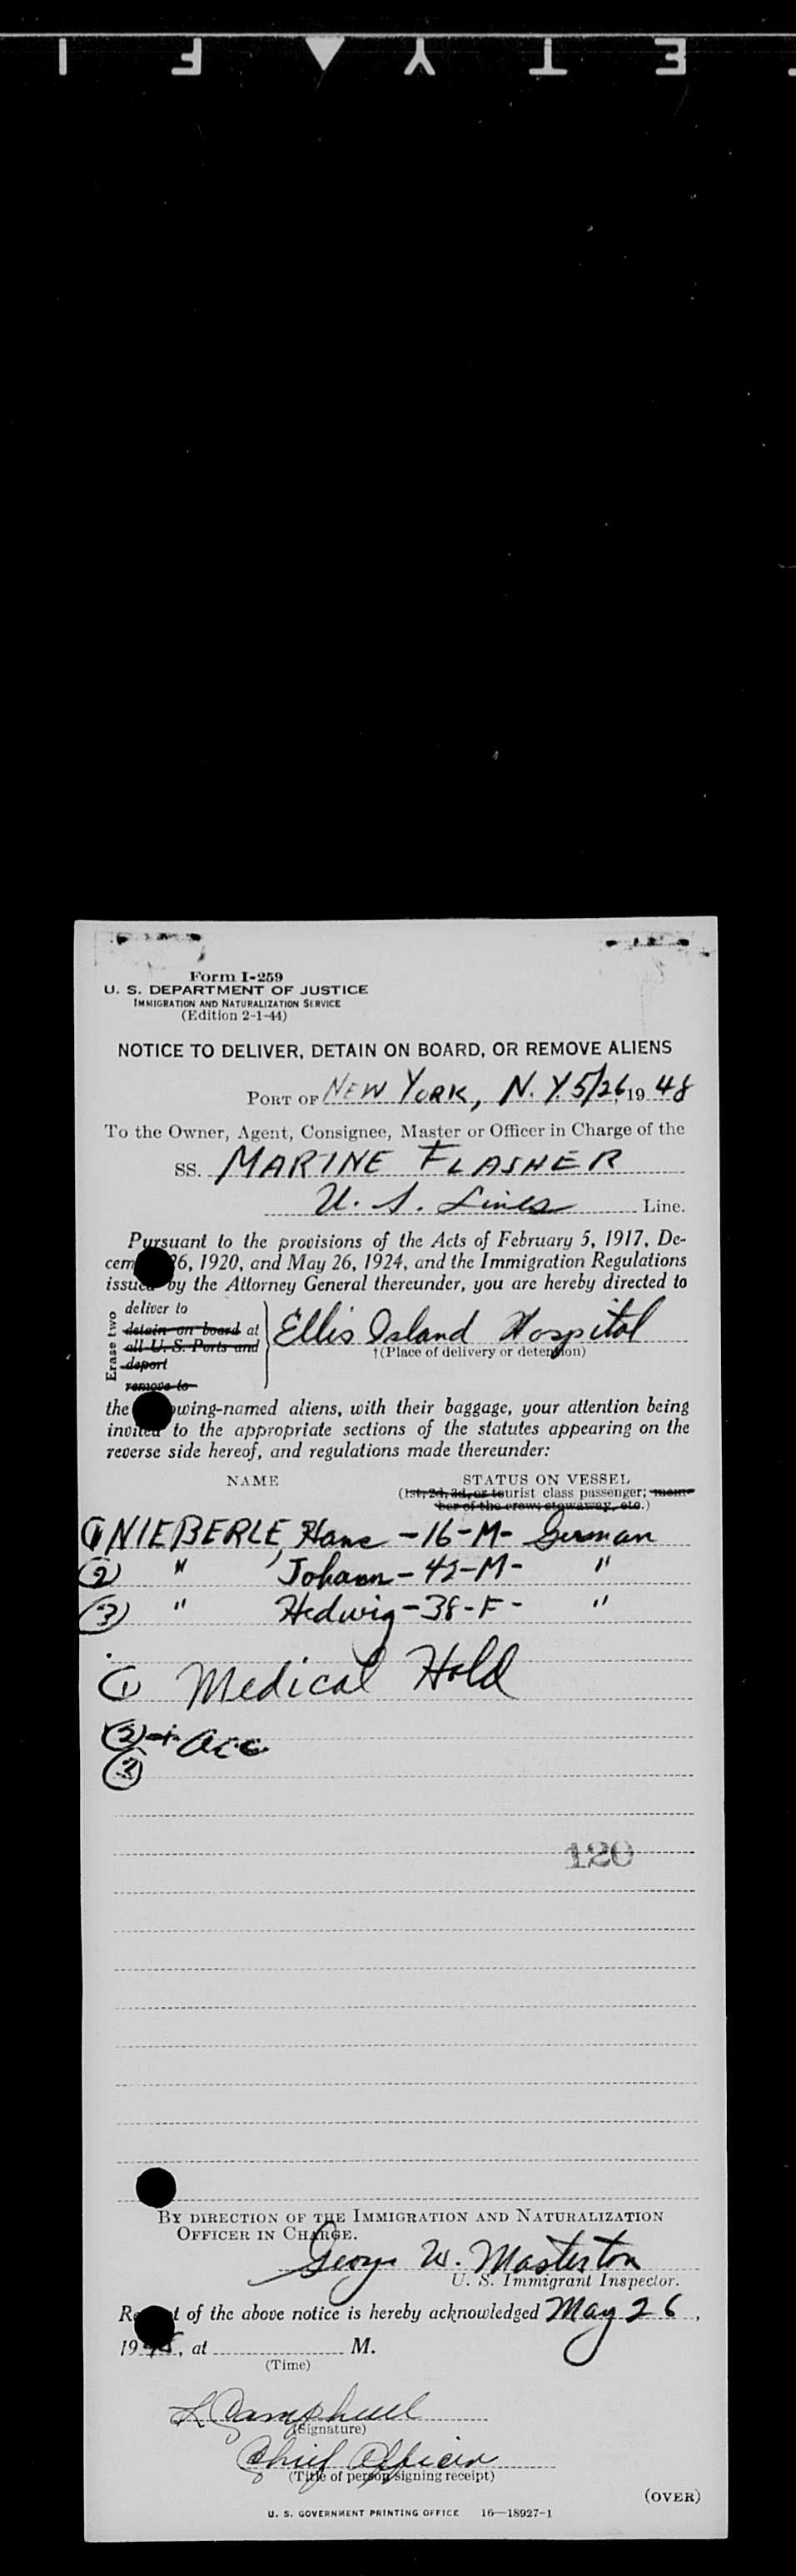 Form I-259
U. S. DEPARTMENT OF JUSTICE
IMMIGRATION AND NATURALIZATION SERVICE
(Edition 2-1-44)
NOTICE TO DELIVER, DETAIN ON BOARD, OR REMOVE ALIENS
PORT OF NEW YORK, N. Y. 5/26, 19 48
To the Owner, Agent, Consignee, Master or Officer in Charge of the
SS. MARINE FLASHER
U. S. Lines Line.
Pursuant to the provisions of the Acts of February 5, 1917, De-
cem 26, 1920, and May 26, 1924, and the Immigration Regulations
issued by the Attorney General thereunder, you are hereby directed to
Erase two
deliver to
detain on board at
all U. S. Ports and
deport
remove to
Ellis Island Hospital
†(Place of delivery or detention)
the owing-named aliens, with their baggage, your attention being
invited to the appropriate sections of the statutes appearing on the
reverse side hereof, and regulations made thereunder:
NAME STATUS ON VESSEL
(1st, 2d, 3d, or tourist class passenger; mem-
ber of the crew; stowaway, etc.)
(1) NIEBERLE, Hans - 16 - M - German
(2) " Johann - 42 - M - "
(3) " Hedwig - 38 - F - "
(1) Medical Hold
(2) + Acc
(3)
120
BY DIRECTION OF THE IMMIGRATION AND NATURALIZATION
OFFICER IN CHARGE.
George W. Masterton
U. S. Immigrant Inspector.
Re t of the above notice is hereby acknowledged May 26,
1948, at M.
(Time)
L Campbell
(Signature)
Chief Officer
(Title of person signing receipt)
(OVER)
U. S. GOVERNMENT PRINTING OFFICE 16—18927-1